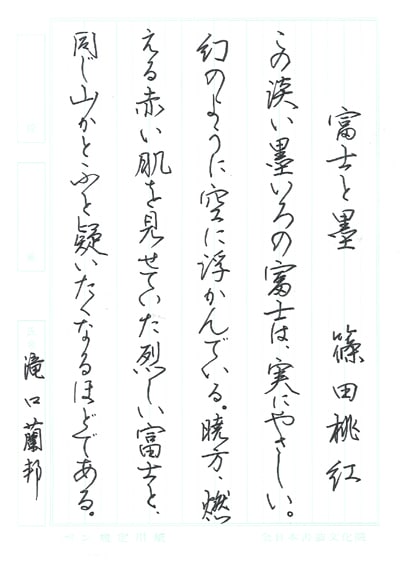 富士と墨　篠田桃紅
この淡い墨いろの富士は、実にやさしい。
幻のように空に浮かんでいる。暁方、燃
える赤い肌を見せていた烈しい富士と、
同じ山かとふと疑いたくなるほどである。
滝口蘭邦